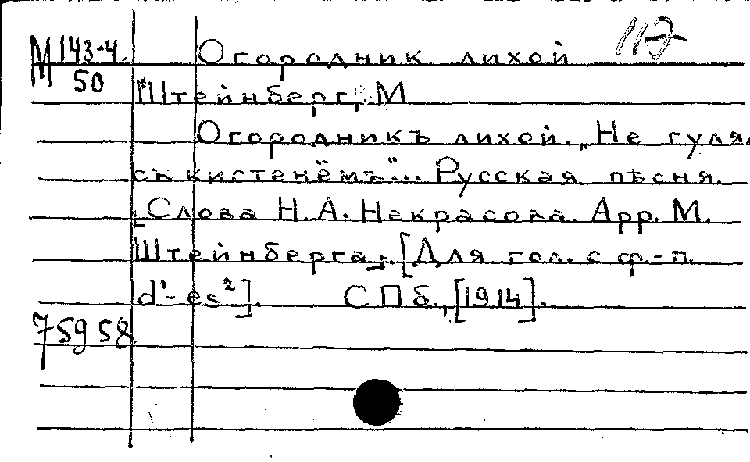 М 143-4 Огородник лихой 112
50
Штейнберг, М
Огородникъ лихой. „Не гуля.
съ кистенёмъ"... Русская пѣсня.
[Слова Н. А. Некрасова. Арр. М.
Штейнберга]. [Для гол. с ф.-п.
d¹-es²]. СПб., [1914].
75958